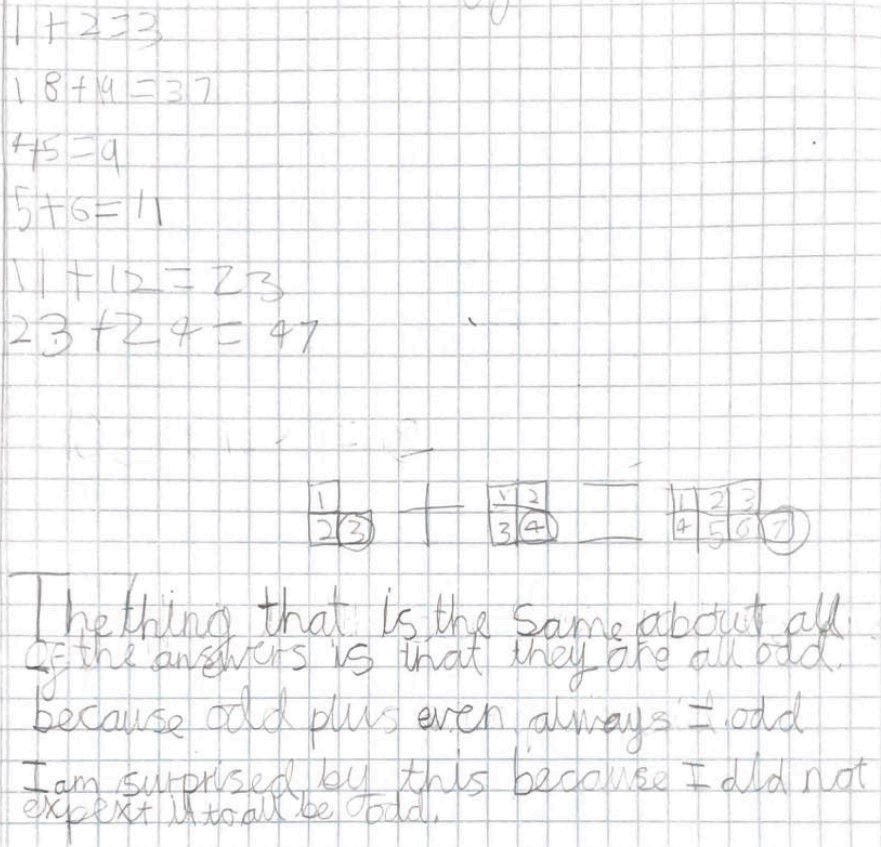 1+2=3
18+19=37
4+5=9
5+6=11
11+12=23
23+24=47
1 1 2 1 2 3
2 3 + 3 4 = 4 5 6 7
The thing that is the same about all
of the answers is that they are all odd.
because odd plus even always = odd
I am surprised by this because I did not
expext it to all be odd.